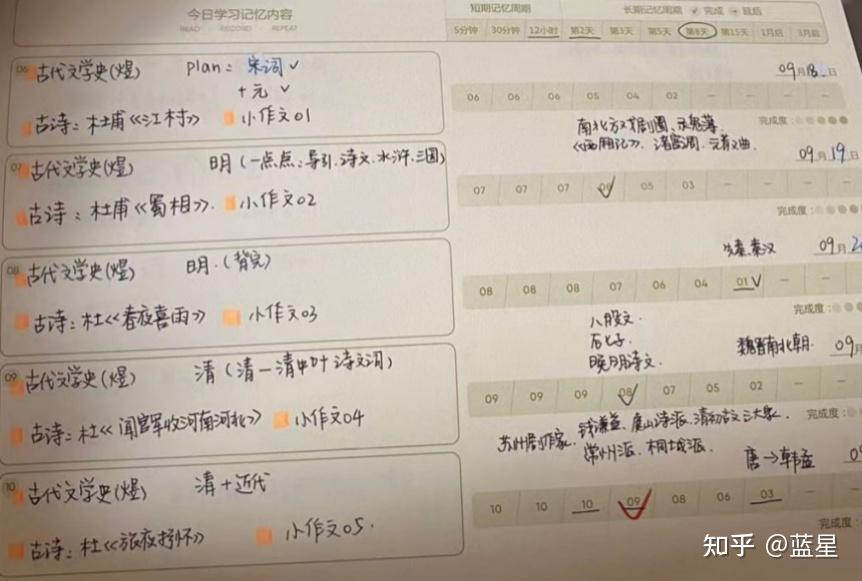 今日学习记忆内容
READ RECORD REPEAT
短期记忆周期
长期记忆周期 ✓ 完成 → 延后
5分钟 30分钟 12小时 第2天 第3天 第5天 第8天 第15天 1月后 3月后
06 古代文学史(煜) plan: 宋词 ✓
+元 ✓
古诗: 杜甫《江村》 小作文01
09月18日
06 06 06 05 04 02 — — —
南北方戏剧圈、录鬼簿
完成度:
《西厢记》、诸宫调、元散曲.
07 古代文学史(煜) 明(一点点: 导引.诗文.水浒.三国)
古诗: 杜甫《蜀相》. 小作文02
09月19日
07 07 07 06 ✓ 05 03 — — —
完成度:
08 古代文学史(煜) 明.(背完)
古诗: 杜《春夜喜雨》 小作文03
先秦.秦汉 09月
08 08 08 07 06 04 01 ✓ — —
完成度:
八股文.
晚明诗文.
魏晋南北朝. 09月
09 古代文学史(煜) 清(清—清中叶诗文词)
古诗: 杜《闻官军收河南河北》 小作文04
09 09 09 08 ✓ 07 05 02 — —
完成度:
苏州剧作家. 钱谦益. 虞山诗派. 清初古文三大家.
常州派. 桐城派.
唐→韩孟
10 古代文学史(煜) 清+近代
古诗: 杜《旅夜书怀》 小作文05.
10 10 10 09 ✓ 08 06 03 — —
完成度:
知乎 @蓝星